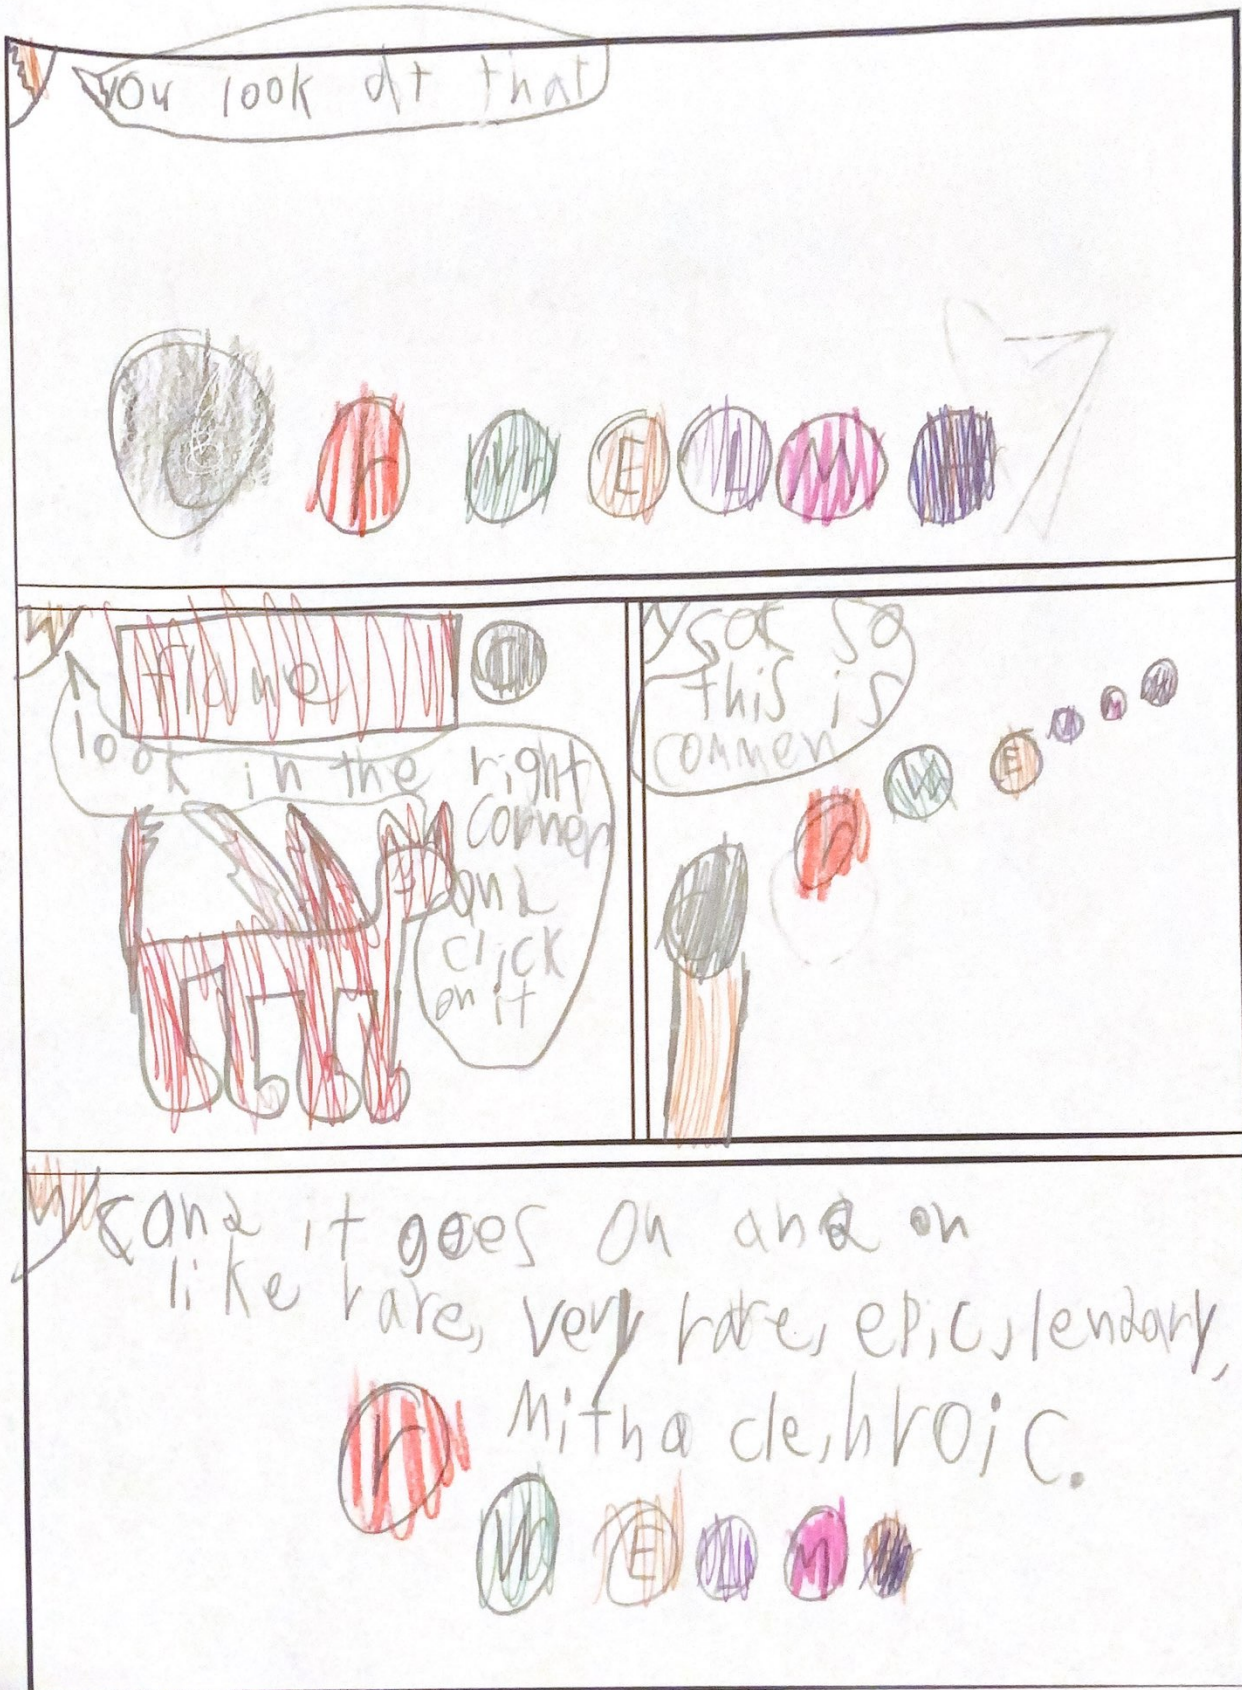 you look at that
C r Vr E L M H
flame C
look in the right
corner
and
click
on it
sot so
this is
commen
r Vr E L M
and it goes on and on
like rare, very rare, epic, lendary,
Mitha cle, hroic.
r Vr E L M